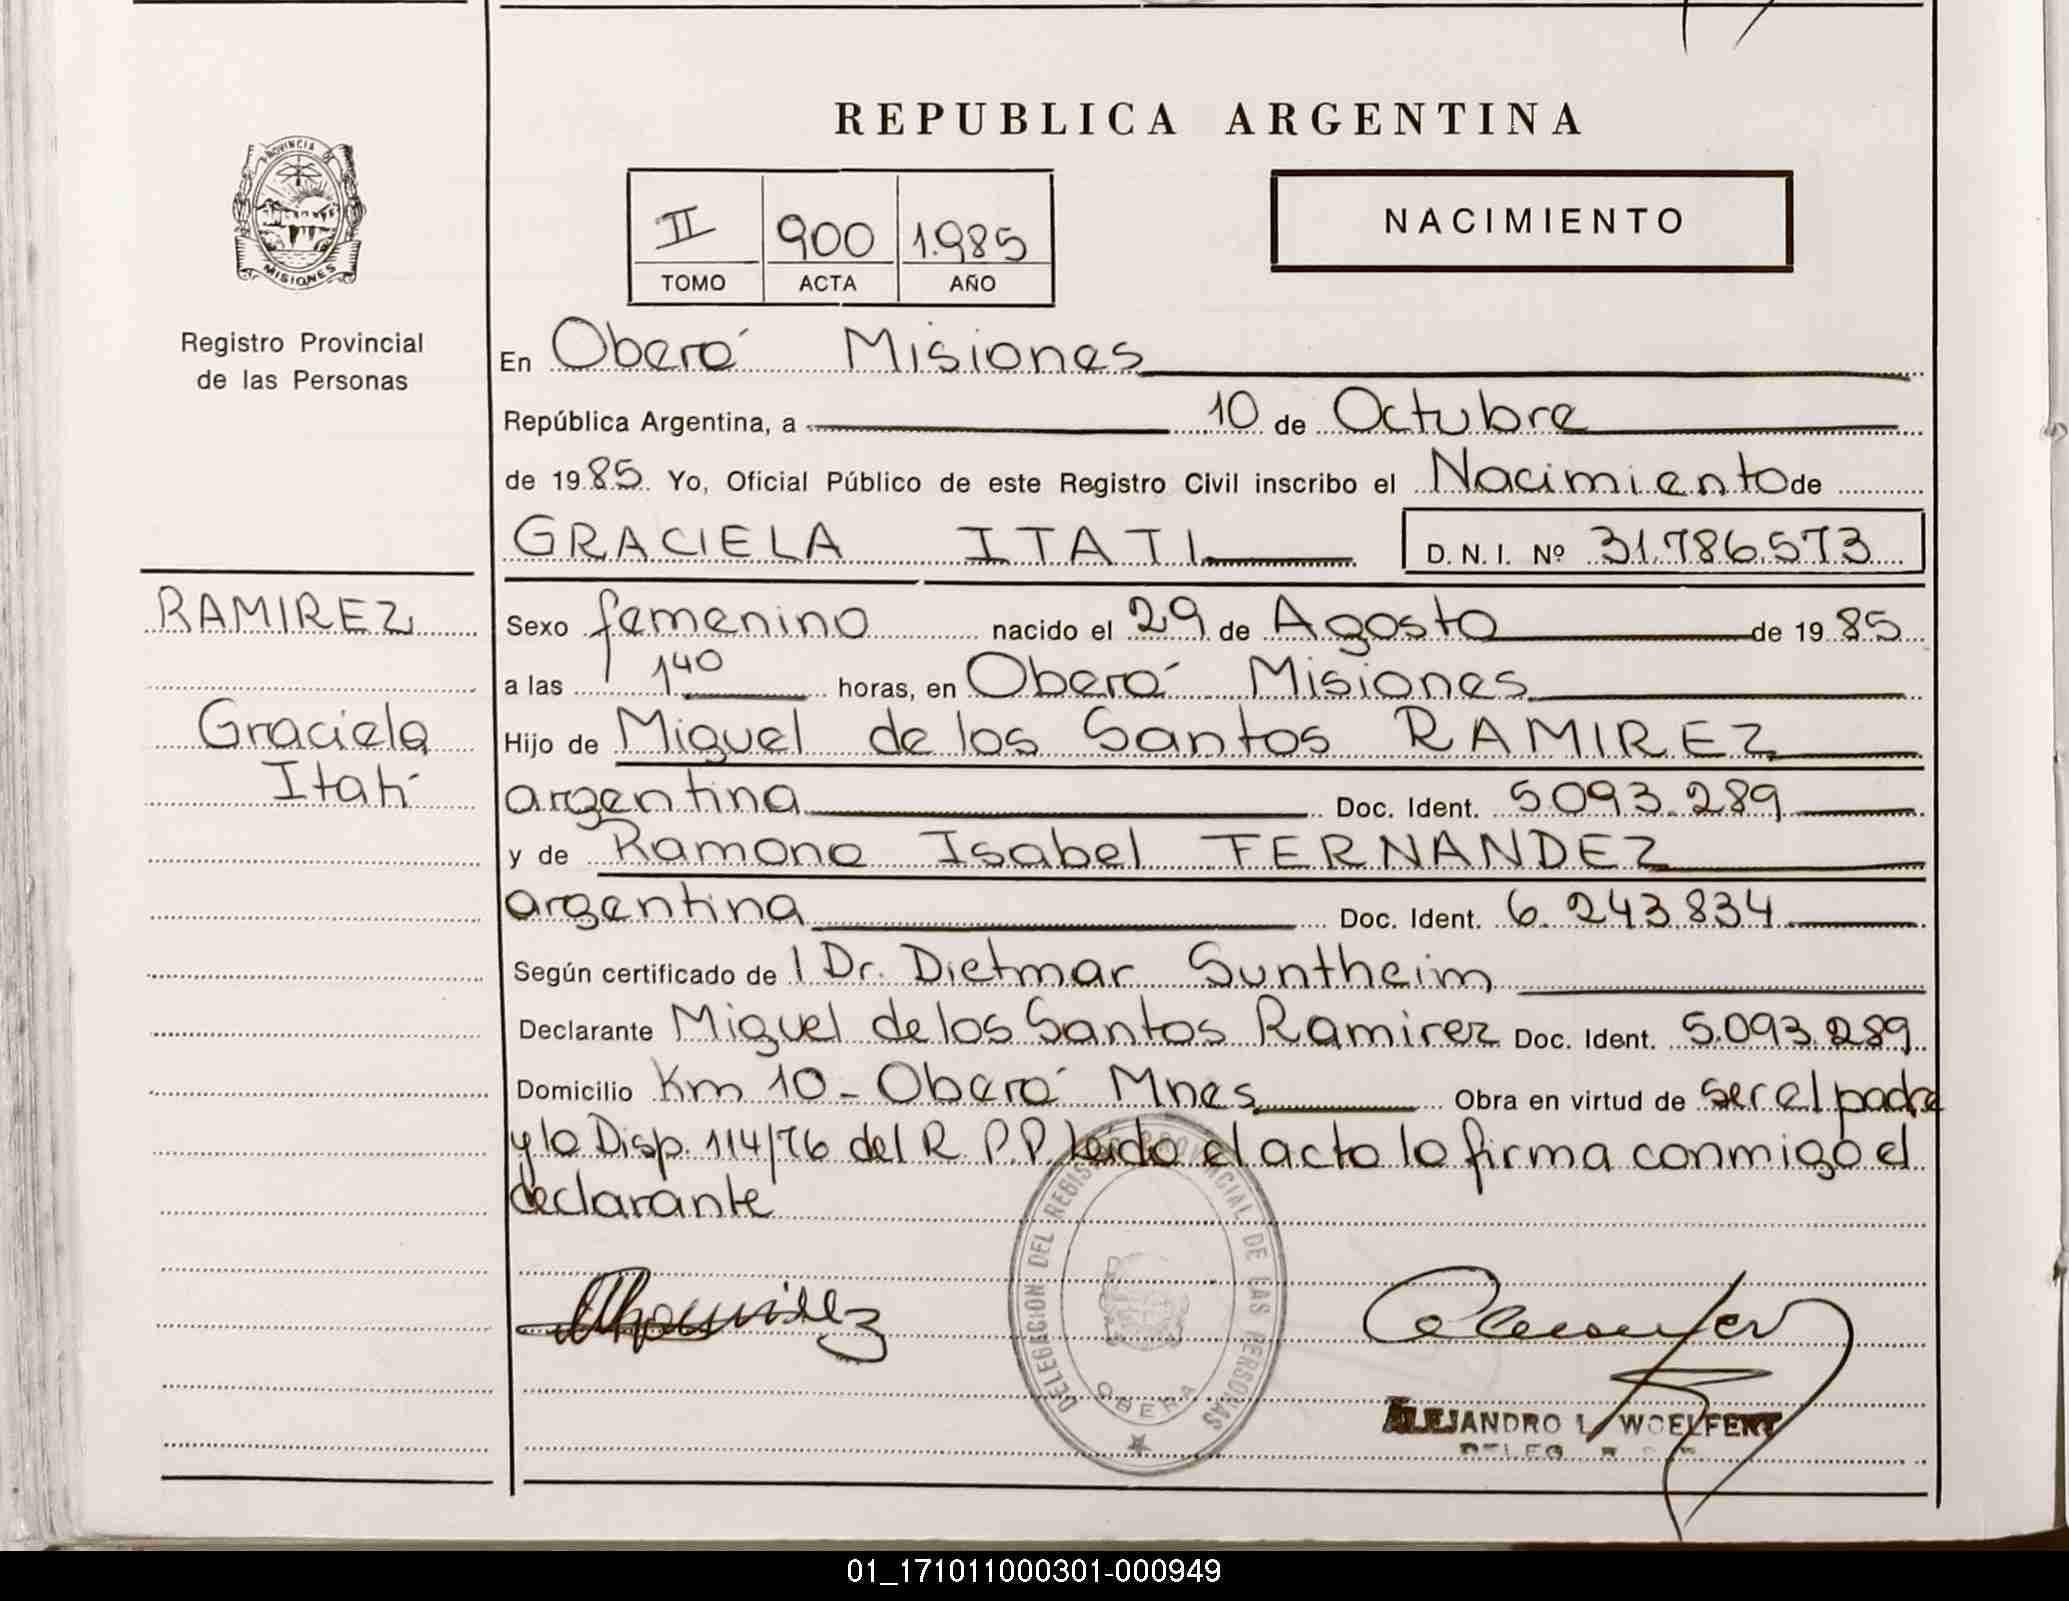 REPUBLICA ARGENTINA
PROVINCIA DE
MISIONES
II 900 1.985
TOMO ACTA AÑO
NACIMIENTO
Registro Provincial
de las Personas
En Oberá Misiones
República Argentina, a 10 de Octubre
de 1985. Yo, Oficial Público de este Registro Civil inscribo el Nacimiento de
GRACIELA ITATI D. N. I. Nº 31.786.573
RAMIREZ
Graciela
Itatí
Sexo femenino nacido el 29 de Agosto de 1985
a las 1 40 horas, en Oberá Misiones
Hijo de Miguel de los Santos RAMIREZ
argentina Doc. Ident. 5.093.289
y de Ramona Isabel FERNANDEZ
argentina Doc. Ident. 6.243.834
Según certificado de l Dr. Dietmar Suntheim
Declarante Miguel de los Santos Ramirez Doc. Ident. 5.093.289
Domicilio Km 10 - Oberá Mnes Obra en virtud de ser el padre
y la Disp. 114/76 del R.P.P. Leído el acto lo firma conmigo el
declarante
DELEGACION DEL REGISTRO PROVINCIAL DE LAS PERSONAS
OBERA
ALEJANDRO L. WOELFERT
01_171011000301-000949